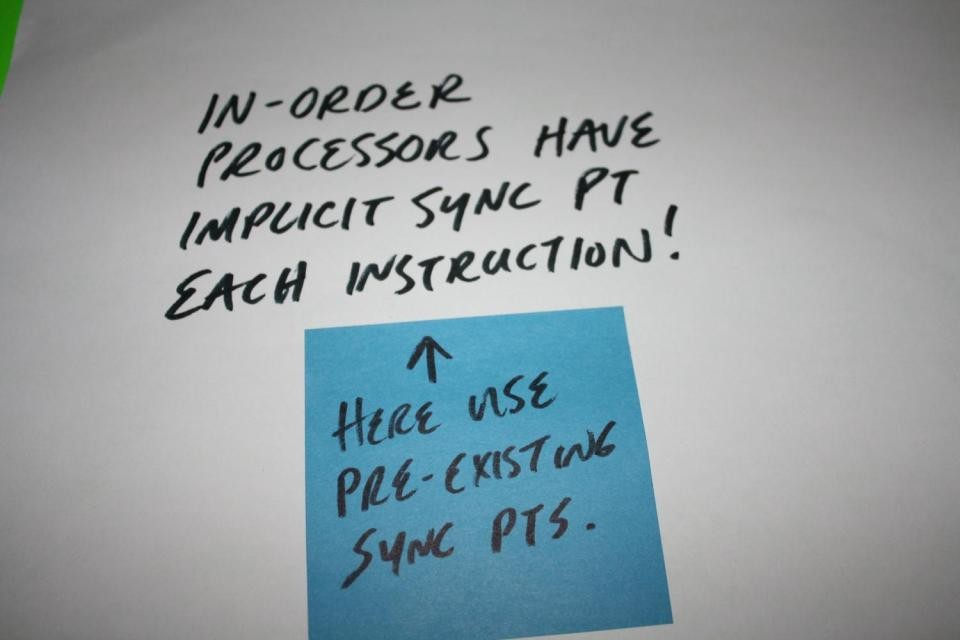 IN-ORDER
PROCESSORS HAVE
IMPLICIT SYNC PT
EACH INSTRUCTION!
↑
HERE USE
PRE-EXISTING
SYNC PTS.